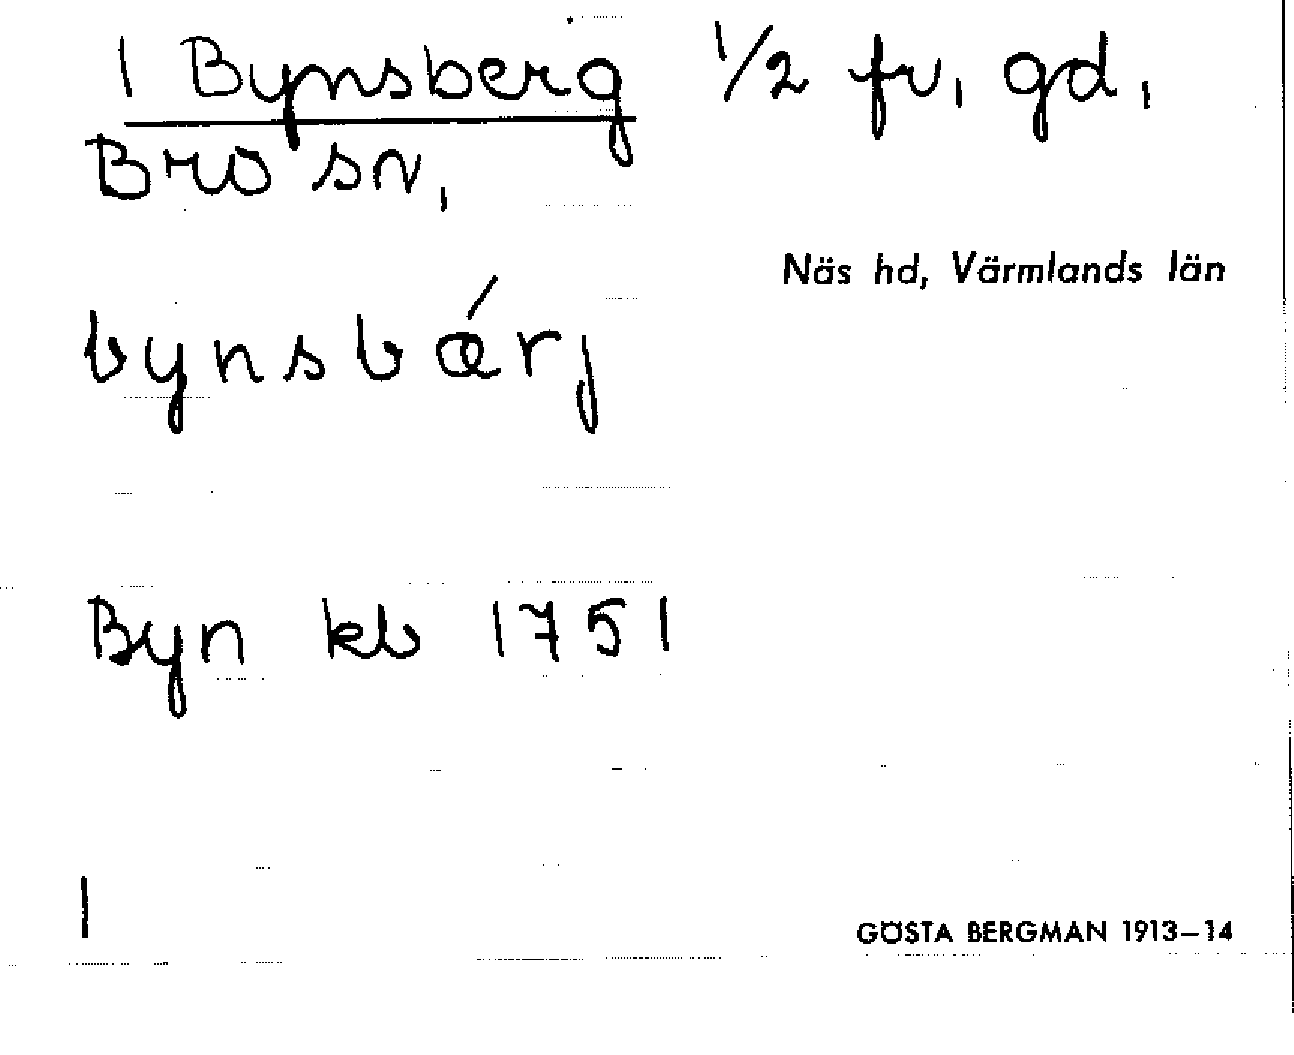 1 Bynsberg 1/2 fr, gd,
Bro sn,
Näs hd, Värmlands län
bynsbǽrj
Byn kb 1751
1
GÖSTA BERGMAN 1913–14